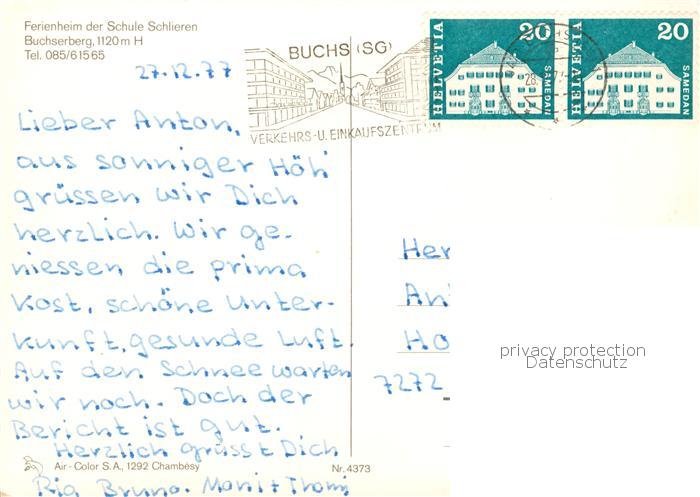 Ferienheim der Schule Schlieren
Buchserberg, 1120 m H
Tel. 085/61565
27.12.77
BUCHS (SG)
VERKEHRS- U. EINKAUFSZENTRUM
HELVETIA 20 SAMEDAN
HELVETIA 20 SAMEDAN
Lieber Anton,
aus sonniger Höh
grüssen wir Dich
herzlich. Wir ge-
niessen die prima
Kost, schöne Unter-
kunft, gesunde Luft.
Auf den Schnee warten
wir noch. Doch der
Bericht ist gut.
Herzlich grüsst Dich
Ria Bruno
Her
An
Ho
7272
privacy protection
Datenschutz
Air-Color S.A., 1292 Chambésy
Nr. 4373